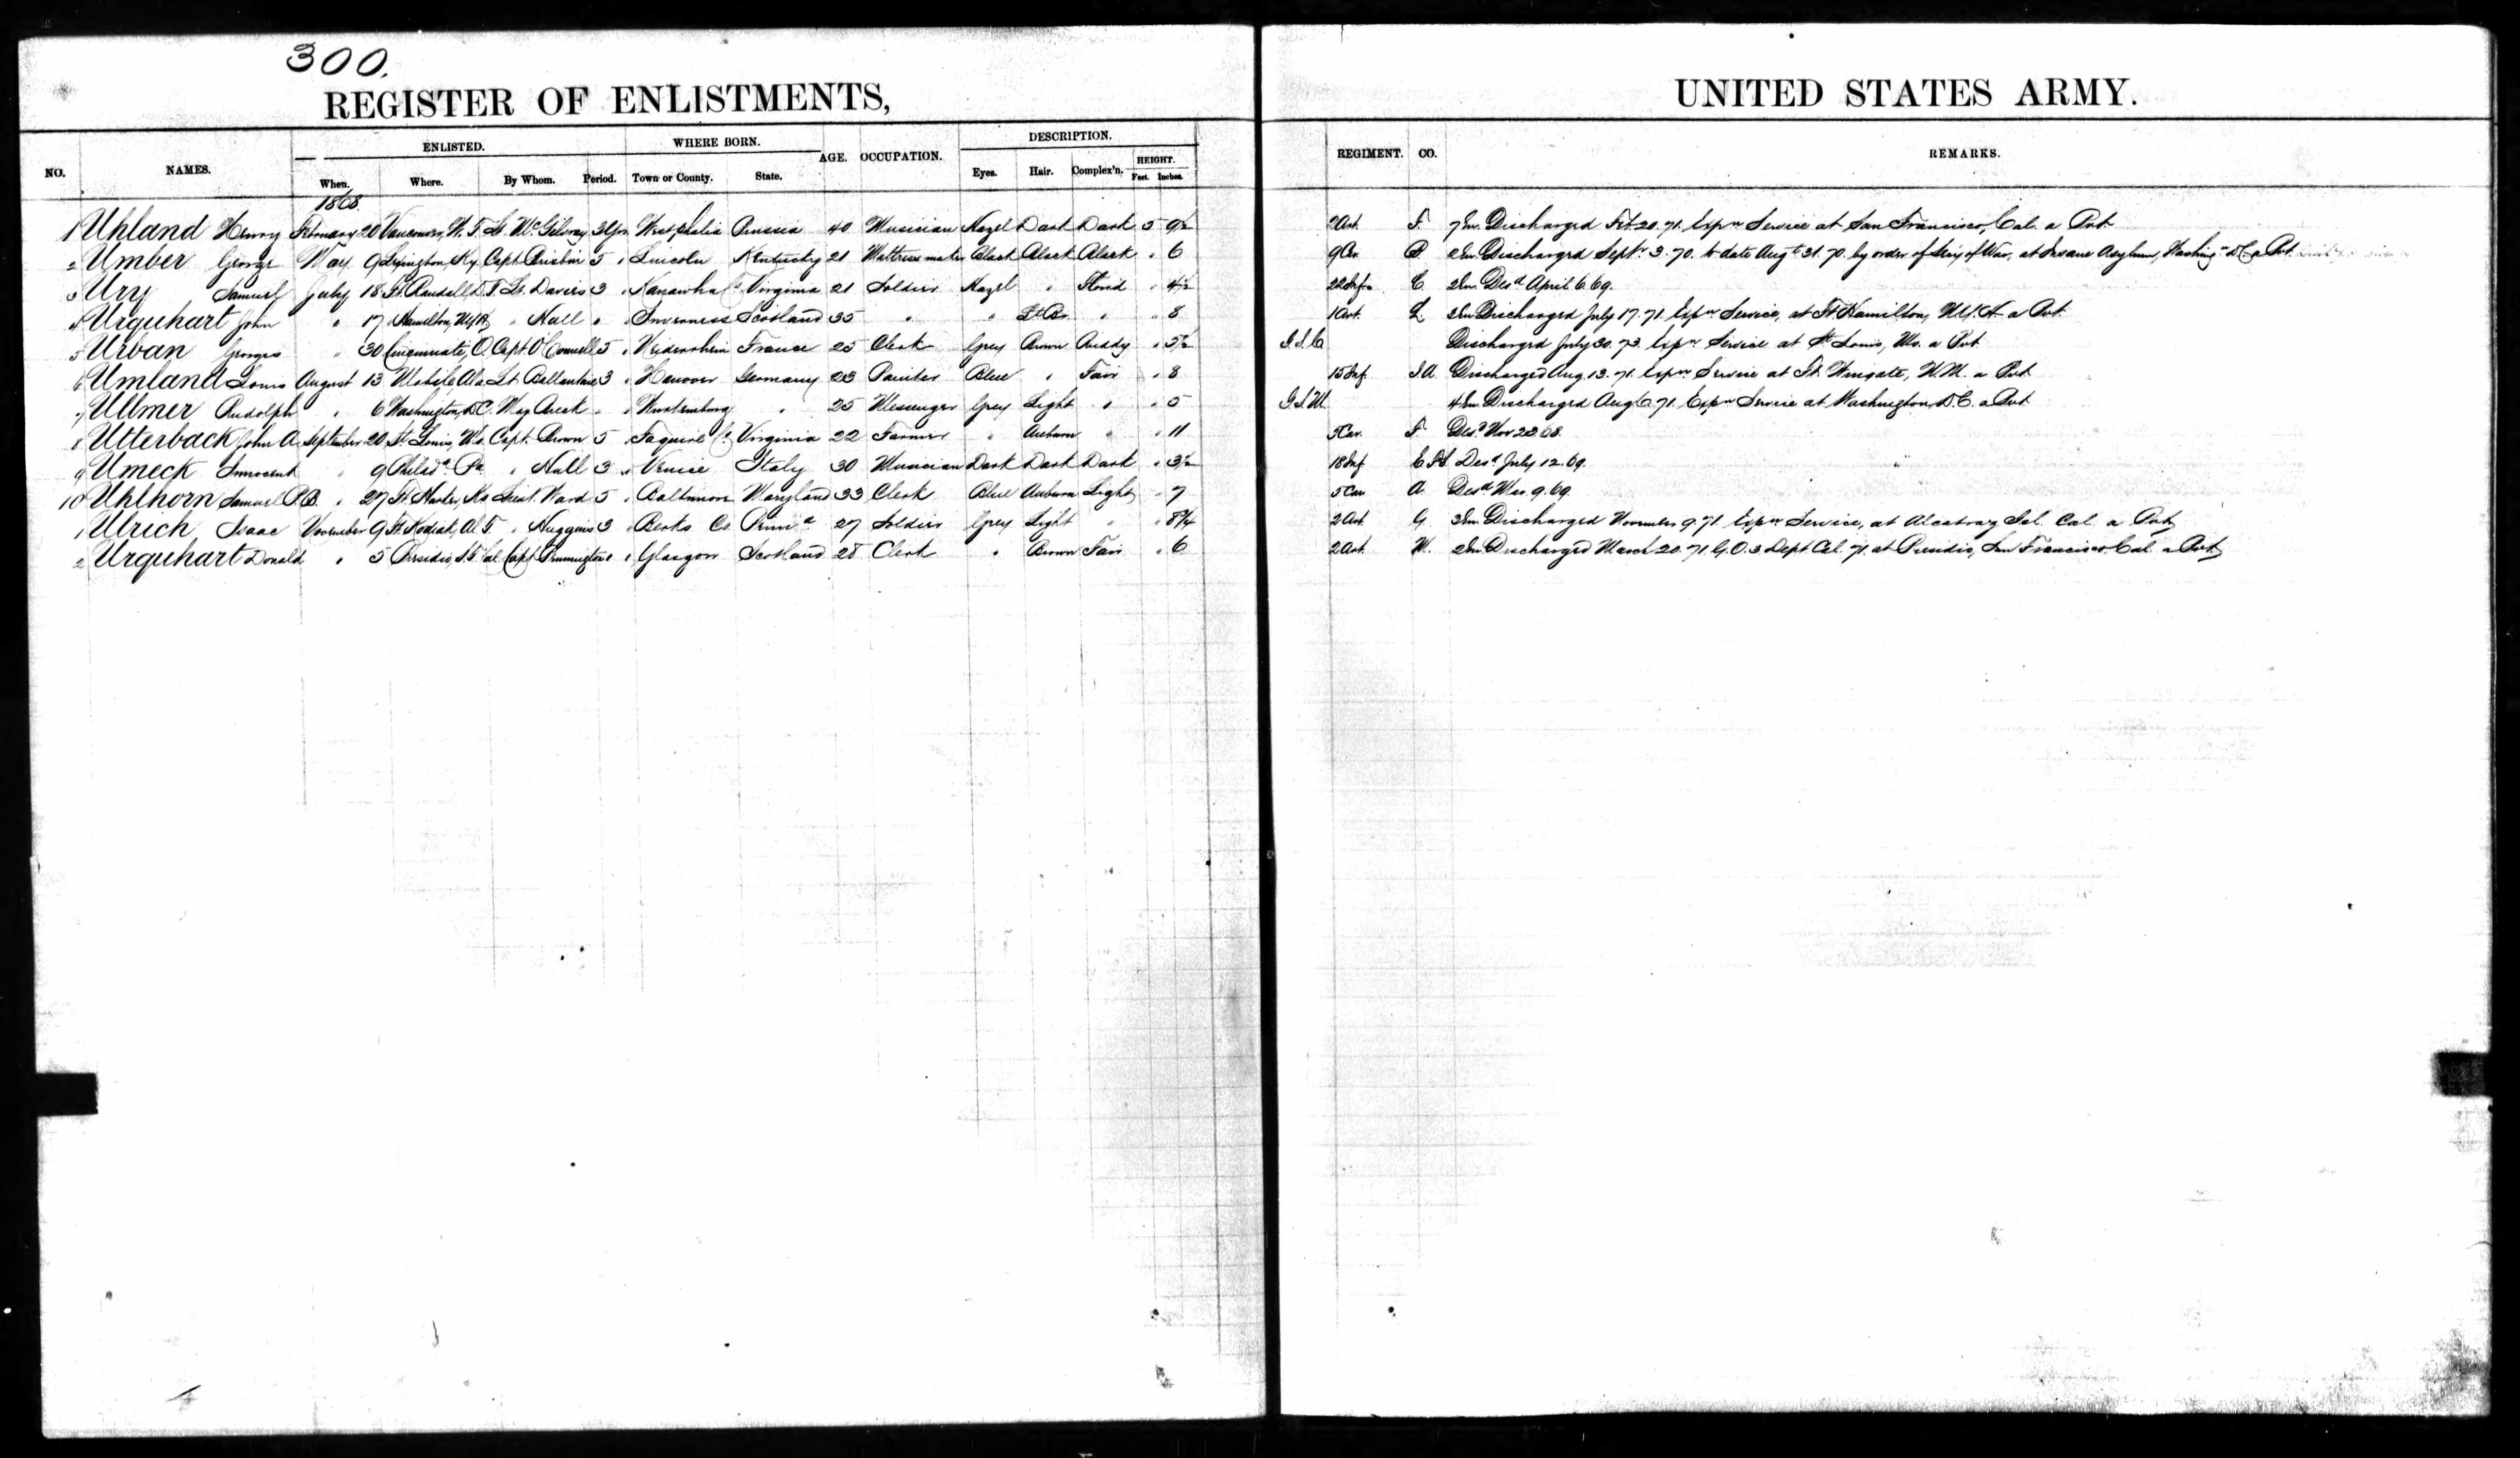 300.
REGISTER OF ENLISTMENTS, UNITED STATES ARMY.
ENLISTED. WHERE BORN. DESCRIPTION.
NO. NAMES. AGE. OCCUPATION. HEIGHT. REGIMENT. CO. REMARKS.
When. Where. By Whom. Period. Town or County. State. Eyes. Hair. Complex'n. Feet. Inches.
1868.
1 Uhland Henry February 20 Vancouver, W.T. Lt. McGilvray 3 Yrs Westphalia Prussia 40 Musician Hazel Dark Dark 5 9½ 2 Art. F. 7 En. Discharged Feb. 20. 71. Expn Service at San Francisco, Cal. a Pvt.
2 Umber George May 9 Lexington, Ky. Capt. Brisbin 5 " Lincoln Kentucky 21 Mattress maker Black Black Black " 6 9 Cav. Discharged Sept. 3. 70. to date Aug't 31. 70. by order of Sec'y of War, at Insane Asylum, Washing'n D.C. a Pvt.
3 Ury Samuel July 18 Ft. Randall D.T. Lt. Davis 3 " Kanawha Co Virginia 21 Soldier Hazel " Florid " 4½ 22 Inf. C. 2 En. Des'd April 6. 69.
4 Urquhart John " 17 Ft Hamilton, N.Y.H. " Hall " " Inverness Scotland 35 " " Lt Br. " " 8 1 Art. L. 2 En Discharged July 17. 71. Expn Service, at Ft Hamilton, N.Y.H. a Pvt.
5 Urban Georges " 30 Cincinnati, O. Capt. O'Connell 5 " France 25 Clerk Grey Brown Ruddy " 5½ Discharged July 30. 73. Expn Service at St Louis, Mo. a Pvt.
6 Umland Louis August 13 Mobile Ala Lt. Ballantine 3 " Hanover Germany 23 Painter Blue " Fair " 8 15 Inf. Discharged Aug. 13. 71. Expn Service at Ft. Wingate, N.M. a Pvt.
7 Ullmer Rudolph " 6 Washington, D.C. Maj " " Wurtemburg " 25 Messenger Grey Light " " 5 G.S.M. 4 En. Discharged Aug 6. 71. Expn Service at Washington D.C. a Pvt.
8 Utterback John A. September 20 St. Louis, Mo. Capt. Brown 5 " Faquire Co Virginia 22 Farmer " Auburn " " 11 5 Cav. F. Des'd Nov 23. 68.
9 Umeck Innocent " 9 Philad'a. Pa. " Hall 3 " Venice Italy 30 Musician Dark Dark Dark " 3½ 18 Inf. Des'd July 12. 69.
10 Uhlhorn Samuel P.B. " 27 Ft. Harker, Ks Lieut. Ward 5 " Baltimore Maryland 33 Clerk Blue Auburn Light " 7 5 Cav. A. Des'd Mar. 9. 69.
1 Ulrich Isaac November 9 Ft. Kodiak, Al T. " Huggins 3 " Berks Co Penn'a 27 Soldier Grey Light " " 8¾ 2 Art. G. 3 En. Discharged November 9. 71. Expn Service, at Alcatraz Isl. Cal. a Pvt.
2 Urquhart Donald " 5 Presidio, S.F. Cal Capt Pennington " " Glasgow Scotland 28 Clerk " Brown Fair " 6 2 Art. M. 2 En Discharged March 20. 71. G.O. 3 Dept Cal. 71. at Presidio, San Francisco, Cal. a Pvt.